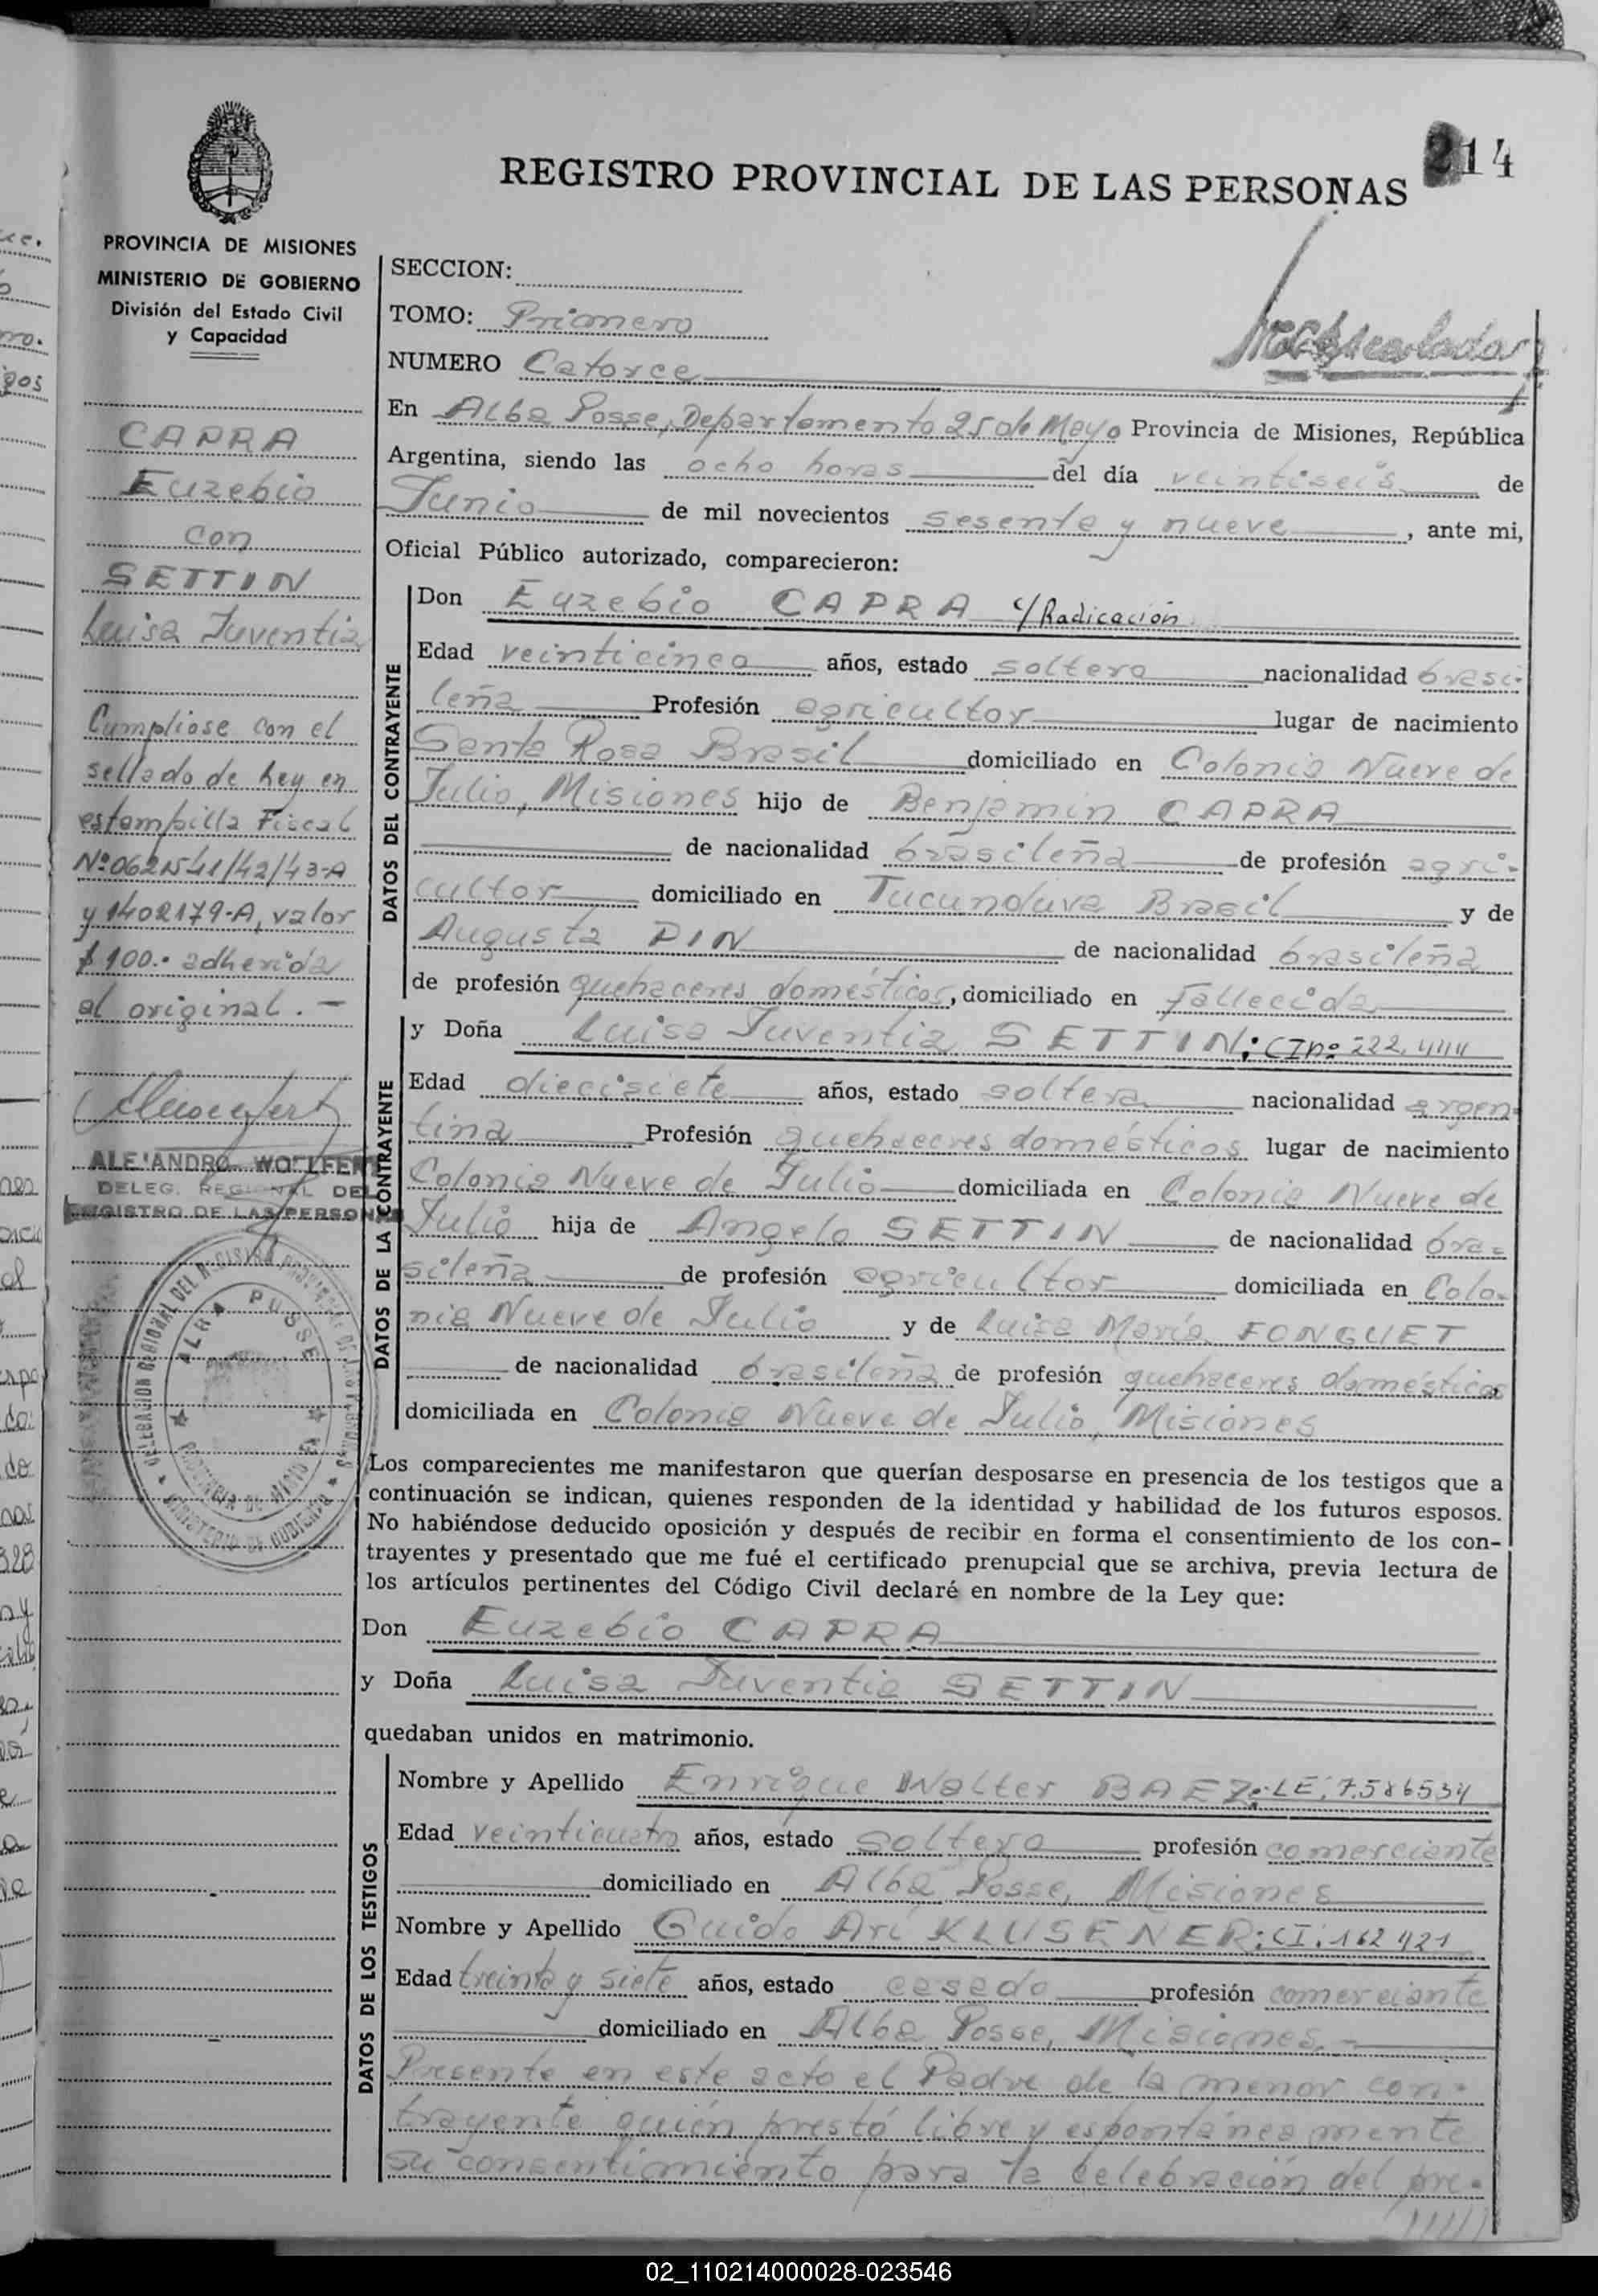 214
REGISTRO PROVINCIAL DE LAS PERSONAS
PROVINCIA DE MISIONES
MINISTERIO DE GOBIERNO
División del Estado Civil
y Capacidad
CAPRA
Euzebio
con
SETTIN
Luisa Juventia
Cumpliose con el
sellado de ley en
estampilla Fiscal
Nº 0621541/42/43-A
y 1402179-A, valor
$ 100.- adherida
al original. -
ALEJANDRO WOLFFERT
DELEG. REGIONAL DEL
REGISTRO DE LAS PERSONAS
DELEGACION REGIONAL DEL REGISTRO PROVINCIAL DE LAS PERSONAS
MINISTERIO DE GOBIERNO
ALBA POSSE
PROVINCIA DE MISIONES
SECCION:
TOMO: Primero
NUMERO Catorce
En Alba Posse, Departamento 25 de Mayo Provincia de Misiones, República
Argentina, siendo las ocho horas del día veintiseis de
Junio de mil novecientos sesenta y nueve, ante mi,
Oficial Público autorizado, comparecieron:
DATOS DEL CONTRAYENTE
Don Euzebio CAPRA c/Radicación
Edad veinticinco años, estado soltero nacionalidad brasi-
leña Profesión agricultor lugar de nacimiento
Santa Rosa Brasil domiciliado en Colonia Nueve de
Julio, Misiones hijo de Benjamin CAPRA
de nacionalidad brasileña de profesión agri-
cultor domiciliado en Tucunduva Brasil y de
Augusta DIN de nacionalidad brasileña
de profesión quehaceres domésticos, domiciliado en Fallecida
DATOS DE LA CONTRAYENTE
y Doña Luisa Juventia SETTIN: CI nº 222.444
Edad diecisiete años, estado soltera nacionalidad argen-
tina Profesión quehaceres domésticos lugar de nacimiento
Colonia Nueve de Julio domiciliada en Colonia Nueve de
Julio hija de Angelo SETTIN de nacionalidad bra-
sileña de profesión agricultor domiciliada en Colo-
nia Nueve de Julio y de Luisa María FONGUET
de nacionalidad brasileña de profesión quehaceres domésticos
domiciliada en Colonia Nueve de Julio, Misiones
Los comparecientes me manifestaron que querían desposarse en presencia de los testigos que a
continuación se indican, quienes responden de la identidad y habilidad de los futuros esposos.
No habiéndose deducido oposición y después de recibir en forma el consentimiento de los con-
trayentes y presentado que me fué el certificado prenupcial que se archiva, previa lectura de
los artículos pertinentes del Código Civil declaré en nombre de la Ley que:
Don Euzebio CAPRA
y Doña Luisa Juventia SETTIN
quedaban unidos en matrimonio.
DATOS DE LOS TESTIGOS
Nombre y Apellido Enrique Walter BAEZ: LE: 7.586534
Edad veinticuatro años, estado soltero profesión comerciante
domiciliado en Alba Posse, Misiones
Nombre y Apellido Guido Ari KLUSENER: CI: 162421
Edad treinta y siete años, estado casado profesión comerciante
domiciliado en Alba Posse, Misiones.-
Presente en este acto el Padre de la menor con-
trayente quién prestó libre y espontáneamente
su consentimiento para la celebración del pre-
02_110214000028-023546